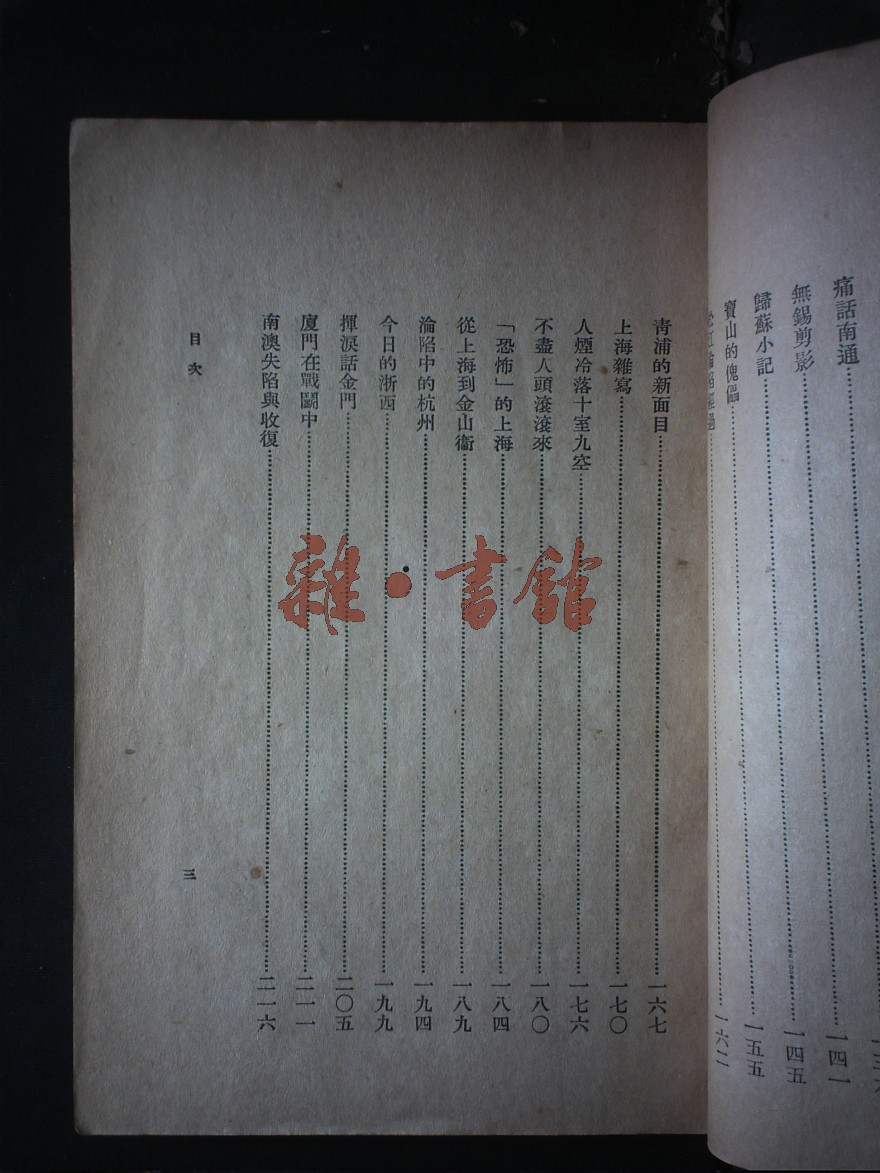 痛話南通……一四一
無錫剪影……一四五
歸蘇小記……一五五
寶山的傀儡
……一六二
靑浦的新面目……一六七
上海雜寫……一七〇
人煙冷落十室九空……一七六
不盡人頭滾滾來……一八〇
「恐怖」的上海……一八四
從上海到金山衞……一八九
淪陷中的杭州……一九四
今日的浙西……一九九
揮淚話金門……二〇五
廈門在戰鬭中……二一一
南澳失陷與收復……二一六
目次
三
雜·書館